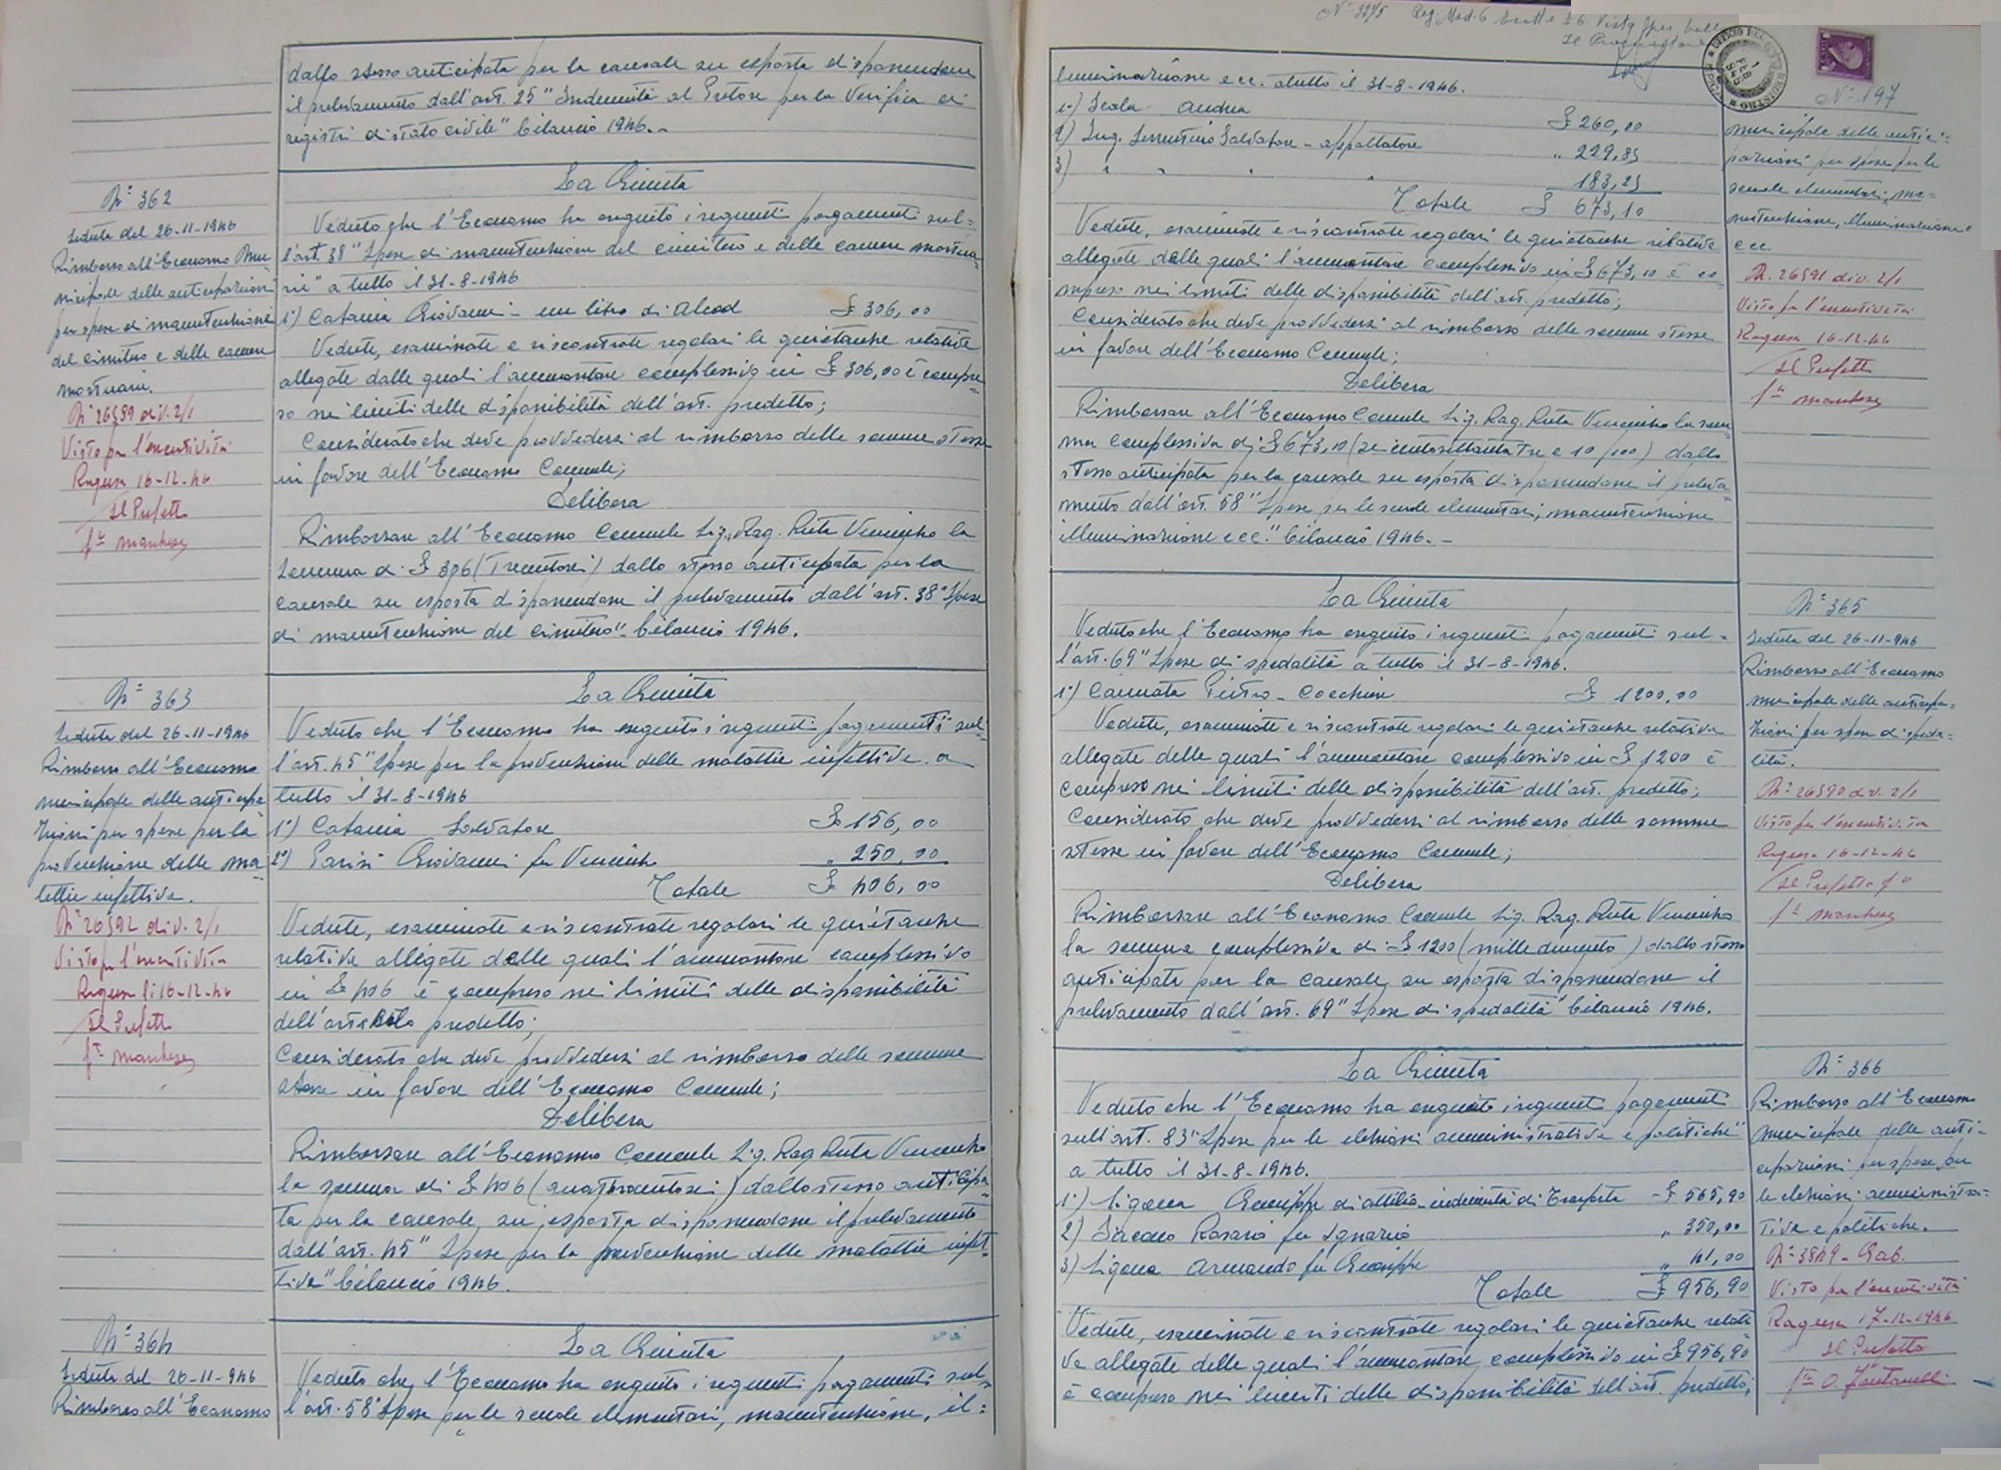 dallo stesso anticipata per la causale su esposta disponendone
il prelevamento dall'art. 25 "Indennità al Pretore per la Verifica ai
registri di stato civile" bilancio 1946.-
N° 362
Seduta del 26-11-1946
Rimborso all'Economo Mu
nicipale delle anticipazioni
per spese di manutenzione
del cimitero e delle camere
mortuarie.
N° 26589 div. 2/1
Visto per l'esecutività
Ragusa 16-12-46
Il Prefetto
f.to Marchese
La Giunta
Veduto che l'Economo ha eseguito i seguenti pagamenti sul=
l'art. 38 "Spese di manutenzione del cimitero e delle camere mortua=
rie" a tutto il 31-8-1946
1°) Catania Giovanni - un litro di alcool £ 306,00
Vedute, esaminate e riscontrate regolari le quietanze relative
allegate dalle quali l'ammontare complessivo in £ 306,00 è compre=
so nei limiti delle disponibilità dell'art. predetto;
Considerato che deve provvedersi al rimborso delle somme stesse
in favore dell'Economo Comunale;
Delibera
Rimborsare all'Economo Comunale Sig. Rag. Ruta Vincenzo la
somma di £ 306 (Trecentosei) dallo stesso anticipata per la
causale su esposta disponendone il prelevamento dall'art. 38 "Spese
di manutenzione del cimitero" bilancio 1946.
N° 363
Seduta del 26-11-1946
Rimborso all'Economo
municipale delle anticipa
zioni per spese per la
prevenzione delle ma=
lattie infettive.
N° 26592 div. 2/1
Visto per l'esecutività
Ragusa li 16-12-46
Il Prefetto
f.to Marchese
La Giunta
Veduto che l'Economo ha eseguito i seguenti pagamenti sul=
l'art. 45 "Spese per la prevenzione delle malattie infettive a
tutto il 31-8-1946
1°) Catania Salvatore £ 156,00
2°) Parisi Giovanni fu Vincenzo " 250,00
Totale £ 406,00
Vedute, esaminate e riscontrate regolari le quietanze
relative allegate dalle quali l'ammontare complessivo
in £ 406 è compreso nei limiti delle disponibilità
dell'articolo predetto;
Considerato che deve provvedersi al rimborso delle somme
stesse in favore dell'Economo Comunale;
Delibera
Rimborsare all'Economo Comunale Sig. Rag. Ruta Vincenzo
la somma di £ 406 (quattrocentosei) dallo stesso anticipa=
ta per la causale su esposta disponendone il prelevamento
dall'art. 45 "Spese per la prevenzione delle malattie infet=
tive" bilancio 1946.
N° 364
Seduta del 26-11-946
Rimborso all'Economo
La Giunta
Veduto che l'Economo ha eseguito i seguenti pagamenti sul=
l'art. 58 "Spese per le scuole elementari, manutenzione, il=
N° 3275
N° 197
luminazione ecc. a tutto il 31-8-1946.
1°) Scala Andrea £ 260,00
2) Sig. Sorrentino Salvatore - appaltatore " 229,85
3) " " " " 183,25
Totale £ 673,10
Vedute, esaminate e riscontrate regolari le quietanze relative
allegate dalle quali l'ammontare complessivo in £ 673,10 è co
mpreso nei limiti delle disponibilità dell'art. predetto;
Considerato che deve provvedersi al rimborso delle somme stesse
in favore dell'Economo Comunale;
Delibera
Rimborsare all'Economo Comunale Sig. Rag. Ruta Vincenzo la som=
ma complessiva di £ 673,10 (seicentosettantatre e 10/100) dallo
stesso anticipata per la causale su esposta disponendone il preleva=
mento dall'art. 58 "Spese per le scuole elementari, manutenzione
illuminazione ecc." bilancio 1946.-
municipale delle antici=
pazioni per spese per le
scuole elementari, ma=
nutenzione, illuminazione
ecc.
N. 26591 div. 2/1
Visto per l'esecutività
Ragusa 16-12-46
Il Prefetto
f.to Marchese
La Giunta
Veduto che l'Economo ha eseguito i seguenti pagamenti sul=
l'art. 69 "Spese di spedalità a tutto il 31-8-1946.
1°) Cannata Pietro - Cocchiere £ 1200,00
Vedute, esaminate e riscontrate regolari le quietanze relative
allegate delle quali l'ammontare complessivo in £ 1200 è
compreso nei limiti delle disponibilità dell'art. predetto;
Considerato che deve provvedersi al rimborso delle somme
stesse in favore dell'Economo Comunale;
Delibera
Rimborsare all'Economo Comunale Sig. Rag. Ruta Vincenzo
la somma complessiva di £ 1200 (milleduecento) dallo stesso
anticipata per la causale su esposta disponendone il
prelevamento dall'art. 69 "Spese di spedalità" bilancio 1946.
N° 365
Seduta del 26-11-946
Rimborso all'Economo
municipale delle anticipa=
zioni per spese di speda=
lità.
N° 26590 div. 2/1
Visto per l'esecutività
Ragusa 16-12-46
Il Prefetto
f.to Marchese
La Giunta
Veduto che l'Economo ha eseguito i seguenti pagamenti
sull'art. 83 "Spese per le elezioni amministrative e politiche"
a tutto il 31-8-1946.
1°) Ligama Giuseppe di Attilio indennità di trasferta £ 565,90
2) Iacono Rosario fu Ignazio " 350,00
3) Ligama Armando fu Giuseppe " 41,00
Totale £ 956,90
Vedute, esaminate e riscontrate regolari le quietanze relati
ve allegate delle quali l'ammontare complessivo in £ 956,90
è compreso nei limiti delle disponibilità dell'art. predetto;
N° 366
Rimborso all'Economo
municipale delle anti=
cipazioni per spese per
le elezioni amministra=
tive e politiche.
N° 3849 - Gab.
Visto per l'esecutività
Ragusa 17-12-1946
Il Prefetto